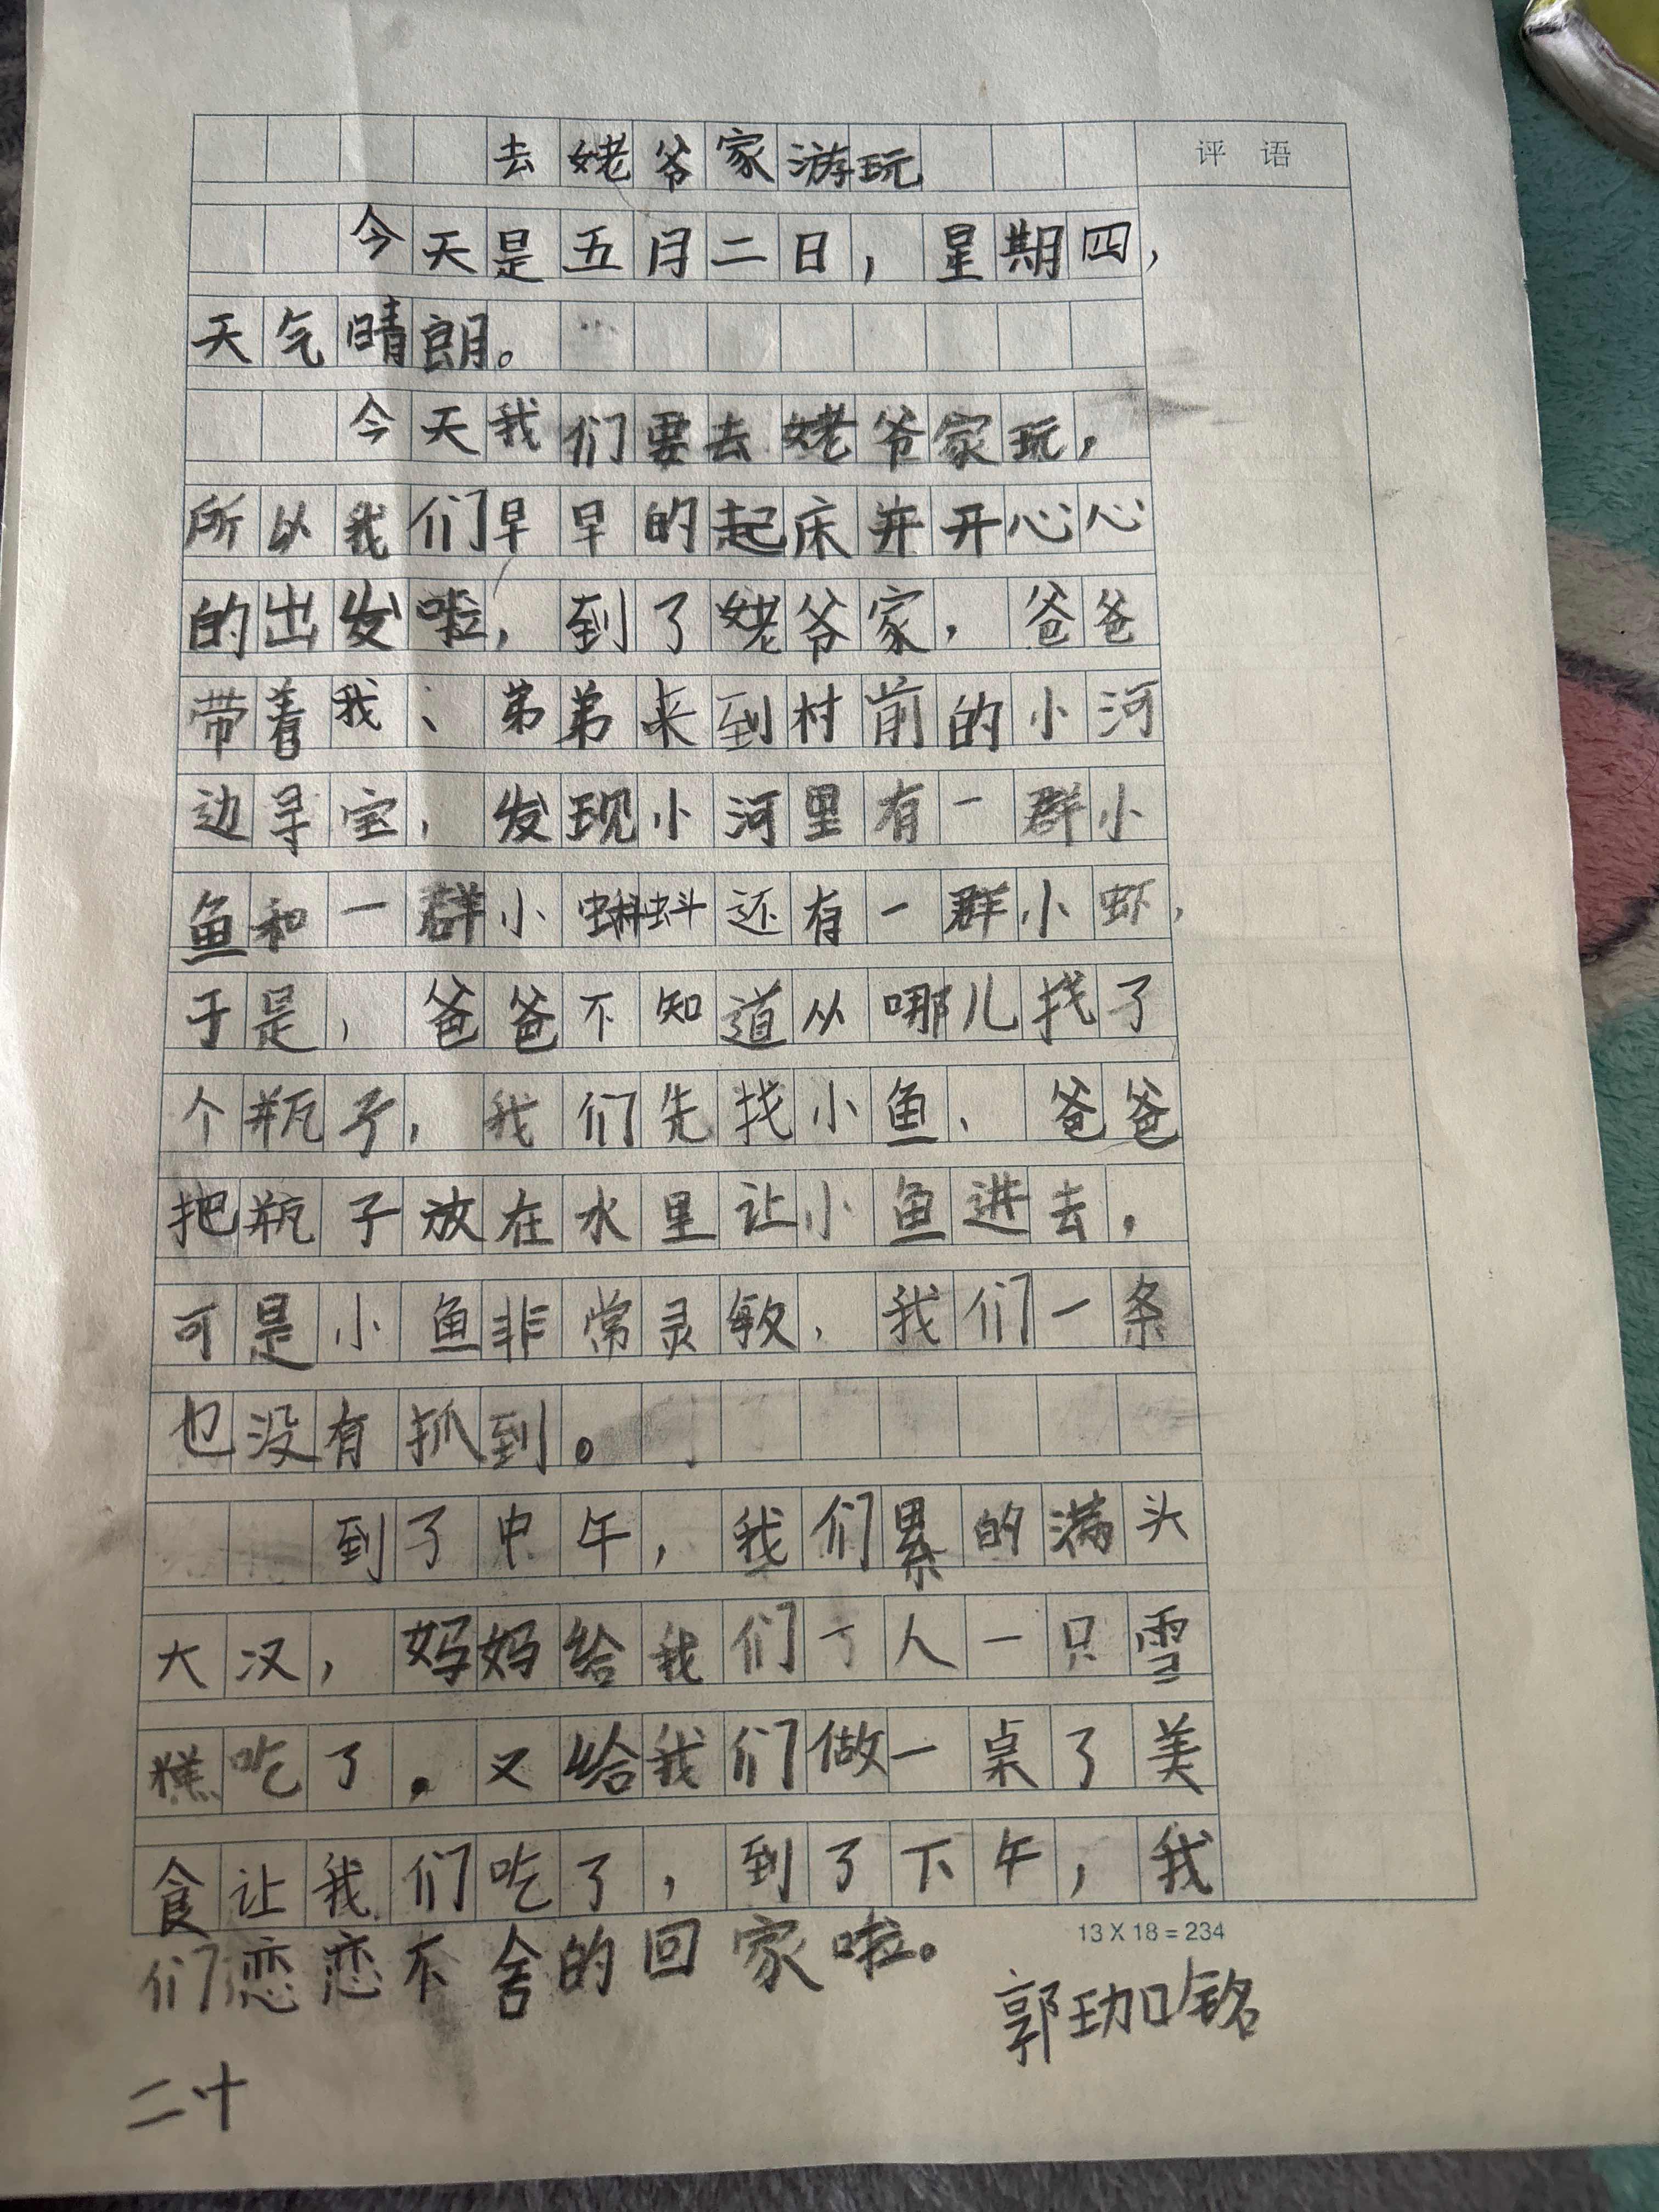 去姥爷家游玩
评 语
今天是五月二日，星期四，
天气晴朗。
今天我们要去姥爷家玩，
所以我们早早的起床并开心心
的出发啦，到了姥爷家，爸爸
带着我、弟弟来到村前的小河
边寻宝，发现小河里有一群小
鱼和一群小蝌蚪还有一群小虾，
于是，爸爸不知道从哪儿找了
个瓶子，我们先找小鱼、爸爸
把瓶子放在水里让小鱼进去，
可是小鱼非常灵敏，我们一条
也没有抓到。
到了中午，我们累的满头
大汉，妈妈给我们一人一只雪
糕吃了。又给我们做一桌了美
食让我们吃了，到了下午，我
13 X 18 = 234
们恋恋不舍的回家啦。
郭珈铭
二十